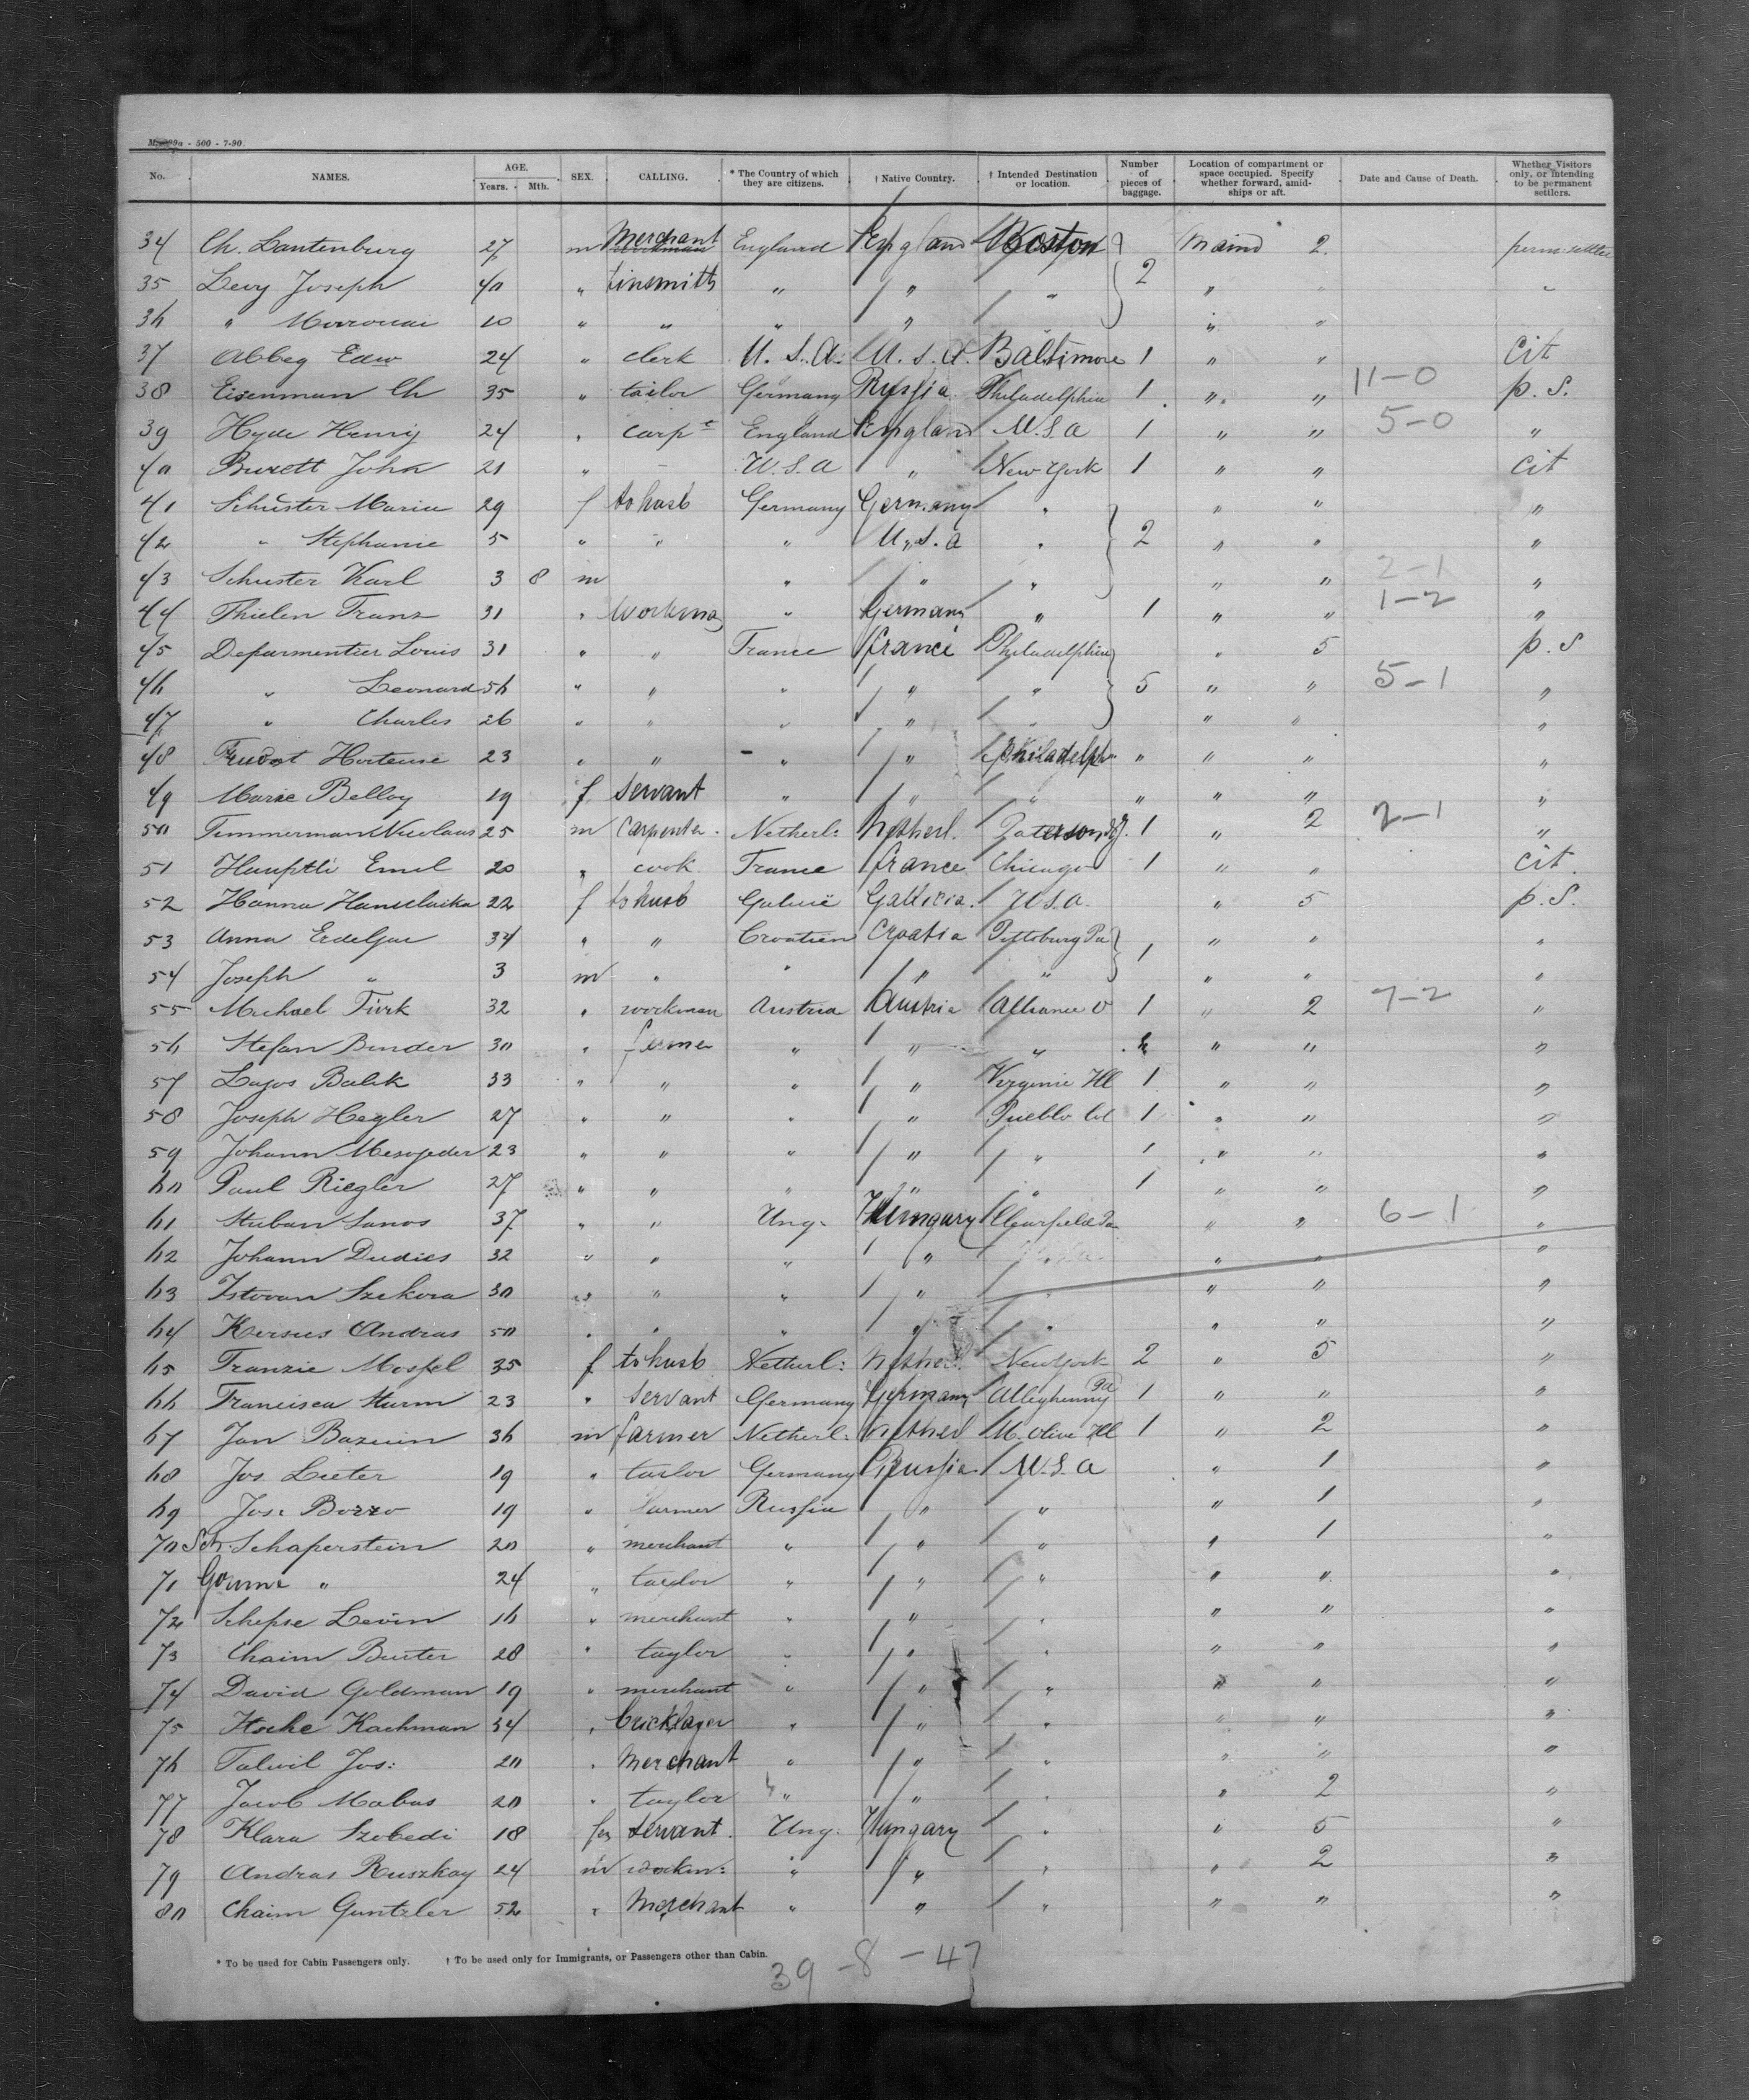 M. 99a - 500 - 7-90
No. NAMES. AGE. Years. Mth. SEX. CALLING. * The Country of which they are citizens. † Native Country. † Intended Destination or location. Number of pieces of baggage. Location of compartment or space occupied. Specify whether forward, amidships or aft. Date and Cause of Death. Whether Visitors only, or intending to be permanent settlers.
34 Ch. Lantenburg 27 m Merchant England England Boston Maind 2. perm settler
35 Levy Joseph 40 " tinsmith " " " 2 " " "
36 " 10 " " " " " " "
37 Abbeg Edw 24 " clerk U.S.A. U.S.A. Baltimore 1 " " Cit
38 Eisenman Ch 35 " tailor Germany Russia Philadelphia 1 " " 11-0 p. S.
39 Hyde Henry 24 " carpt England England U.S.A 1 " " 5-0 "
40 Burett John 21 " - U.S.A " New York 1 " " Cit
41 Schuster Maria 29 f to husb Germany Germany " " " "
42 " Stephanie 5 " " " U.S.A " 2 " " "
43 Schuster Karl 3 8 m " " " " " 2-1 "
44 Thielen Franz 31 " workman " Germany " 1 " " 1-2 "
45 Deparmentier Louis 31 " " France france Philadelphia " 5 p. S
46 " Leonard 56 " " " " " 5 " " 5-1 "
47 " Charles 26 " " " " " " " "
48 Hortense 23 " " " " Philadelph " " " "
49 Marie Belloy 19 f Servant " " " " " " "
50 Timmerman Nicolaus 25 m Carpenter Netherl: Netherl. Paterson N.J. 1 " 2 2-1 "
51 Hauptli Emil 20 " cook France france Chicago 1 " " Cit.
52 Hanna 22 f to husb Galicie Gallicia. U.S.A. " 5 p. S.
53 Anna Erdeljac 34 " " Croatien Croatia Pittsburg Pa 1 " " "
54 Joseph " 3 m " " " " " " "
55 Michael Türk 32 " workman Austria Austria Alliance O 1 " 2 7-2 "
56 Stefan Binder 30 " " " " " " "
57 Lajos Balik 33 " " " " Virginie Ill 1 " " "
58 Joseph Hegler 27 " " " " Pueblo Col 1 " " "
59 Johann Mesojeder 23 " " " " " 1 " " "
60 Paul Riegler 27 " " " " " 1 " " "
61 37 " " Ung. Hungary Clearfield Pa " " 6-1 "
62 Johann Dudics 32 " " " " " " "
63 Istovan Szekora 30 " " " " " " " "
64 Andras 50 " " " " " " " "
65 Franzie Mospel 35 f to husb Netherl: Netherl. New York 2 " 5 "
66 Francisca Sturm 23 " Servant Germany Germany Alleghenny Pa 1 " " "
67 Jan Bazuin 36 m farmer Netherl: Netherl M. Olive Ill 1 " 2 "
68 Jos Leeter 19 " tailor Germany Russia U.S.A " 1 "
69 Jos: Bozzo 19 " farmer Russia " " " 1 "
70 Sch. Schaperstein 20 " merchant " " " " 1 "
71 " 24 " taylor " " " " " "
72 Schepse Levin 16 " merchant " " " " " "
73 Chaim Burter 28 " taylor " " " " " "
74 David Goldman 19 " merchant " " " " " "
75 Kachman 34 " bricklayer " " " " " "
76 Talwil Jos: 20 " Merchant " " " " " "
77 Jacob Mabus 20 " taylor " " " " 2 "
78 Klara Szebedi 18 fem Servant. Ung. Hungary " " 5 "
79 Andras Ruszkay 24 m workm: " " " " 2 "
80 Chaim Guntzler 52 " Merchant " " " " " "
* To be used for Cabin Passengers only. † To be used only for Immigrants, or Passengers other than Cabin.
39 - 8 - 47